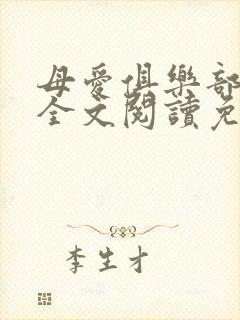 母愛俱樂部
全文閱讀免
李生才